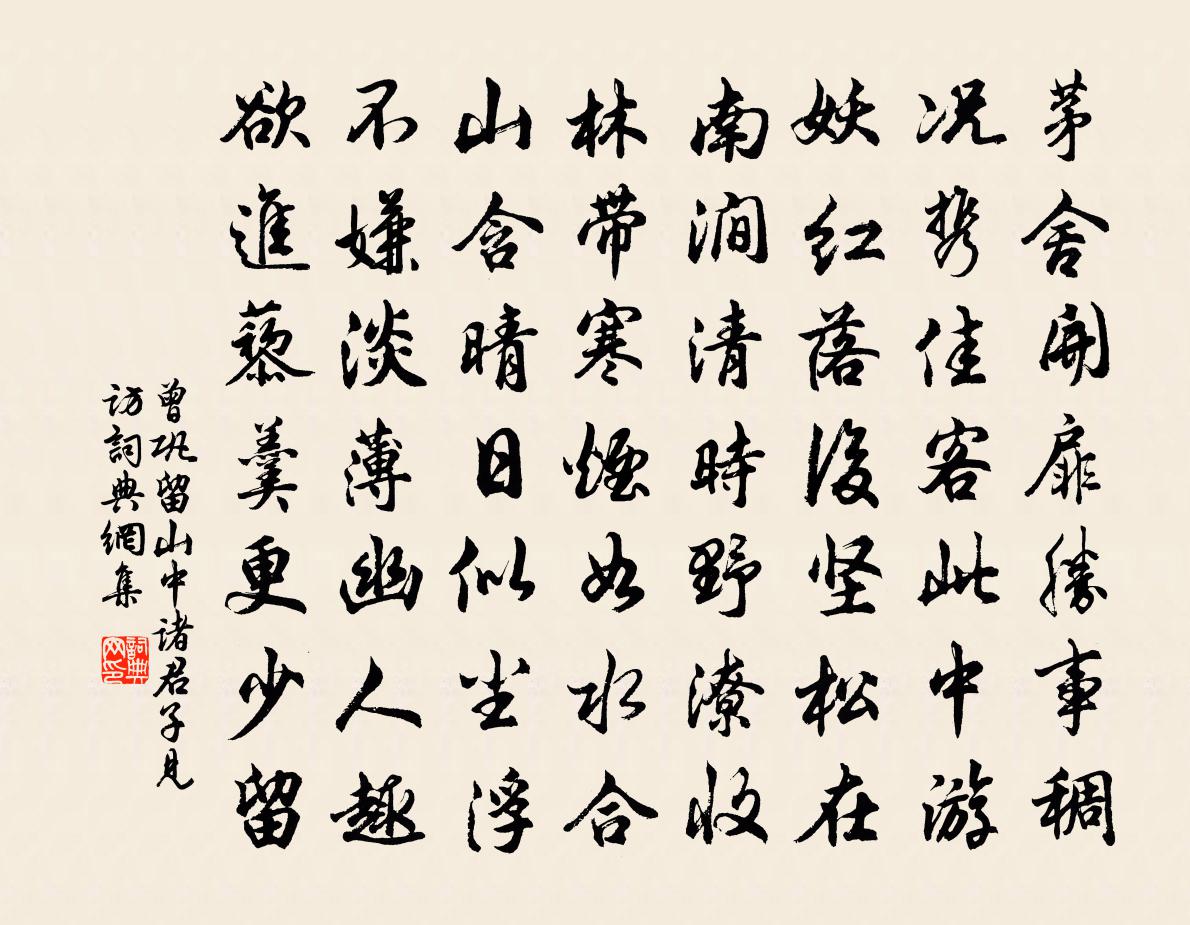 茅舍開扉勝事稠
况携佳客此中游
妖红落後坚松在
南澗清時野潦收
林带寒煙如水合
山含晴日似尘浮
不嫌淡薄幽人趣
欲進藜羹更少留
曾巩留山中诸君子見
访詞典網集
詞典网印